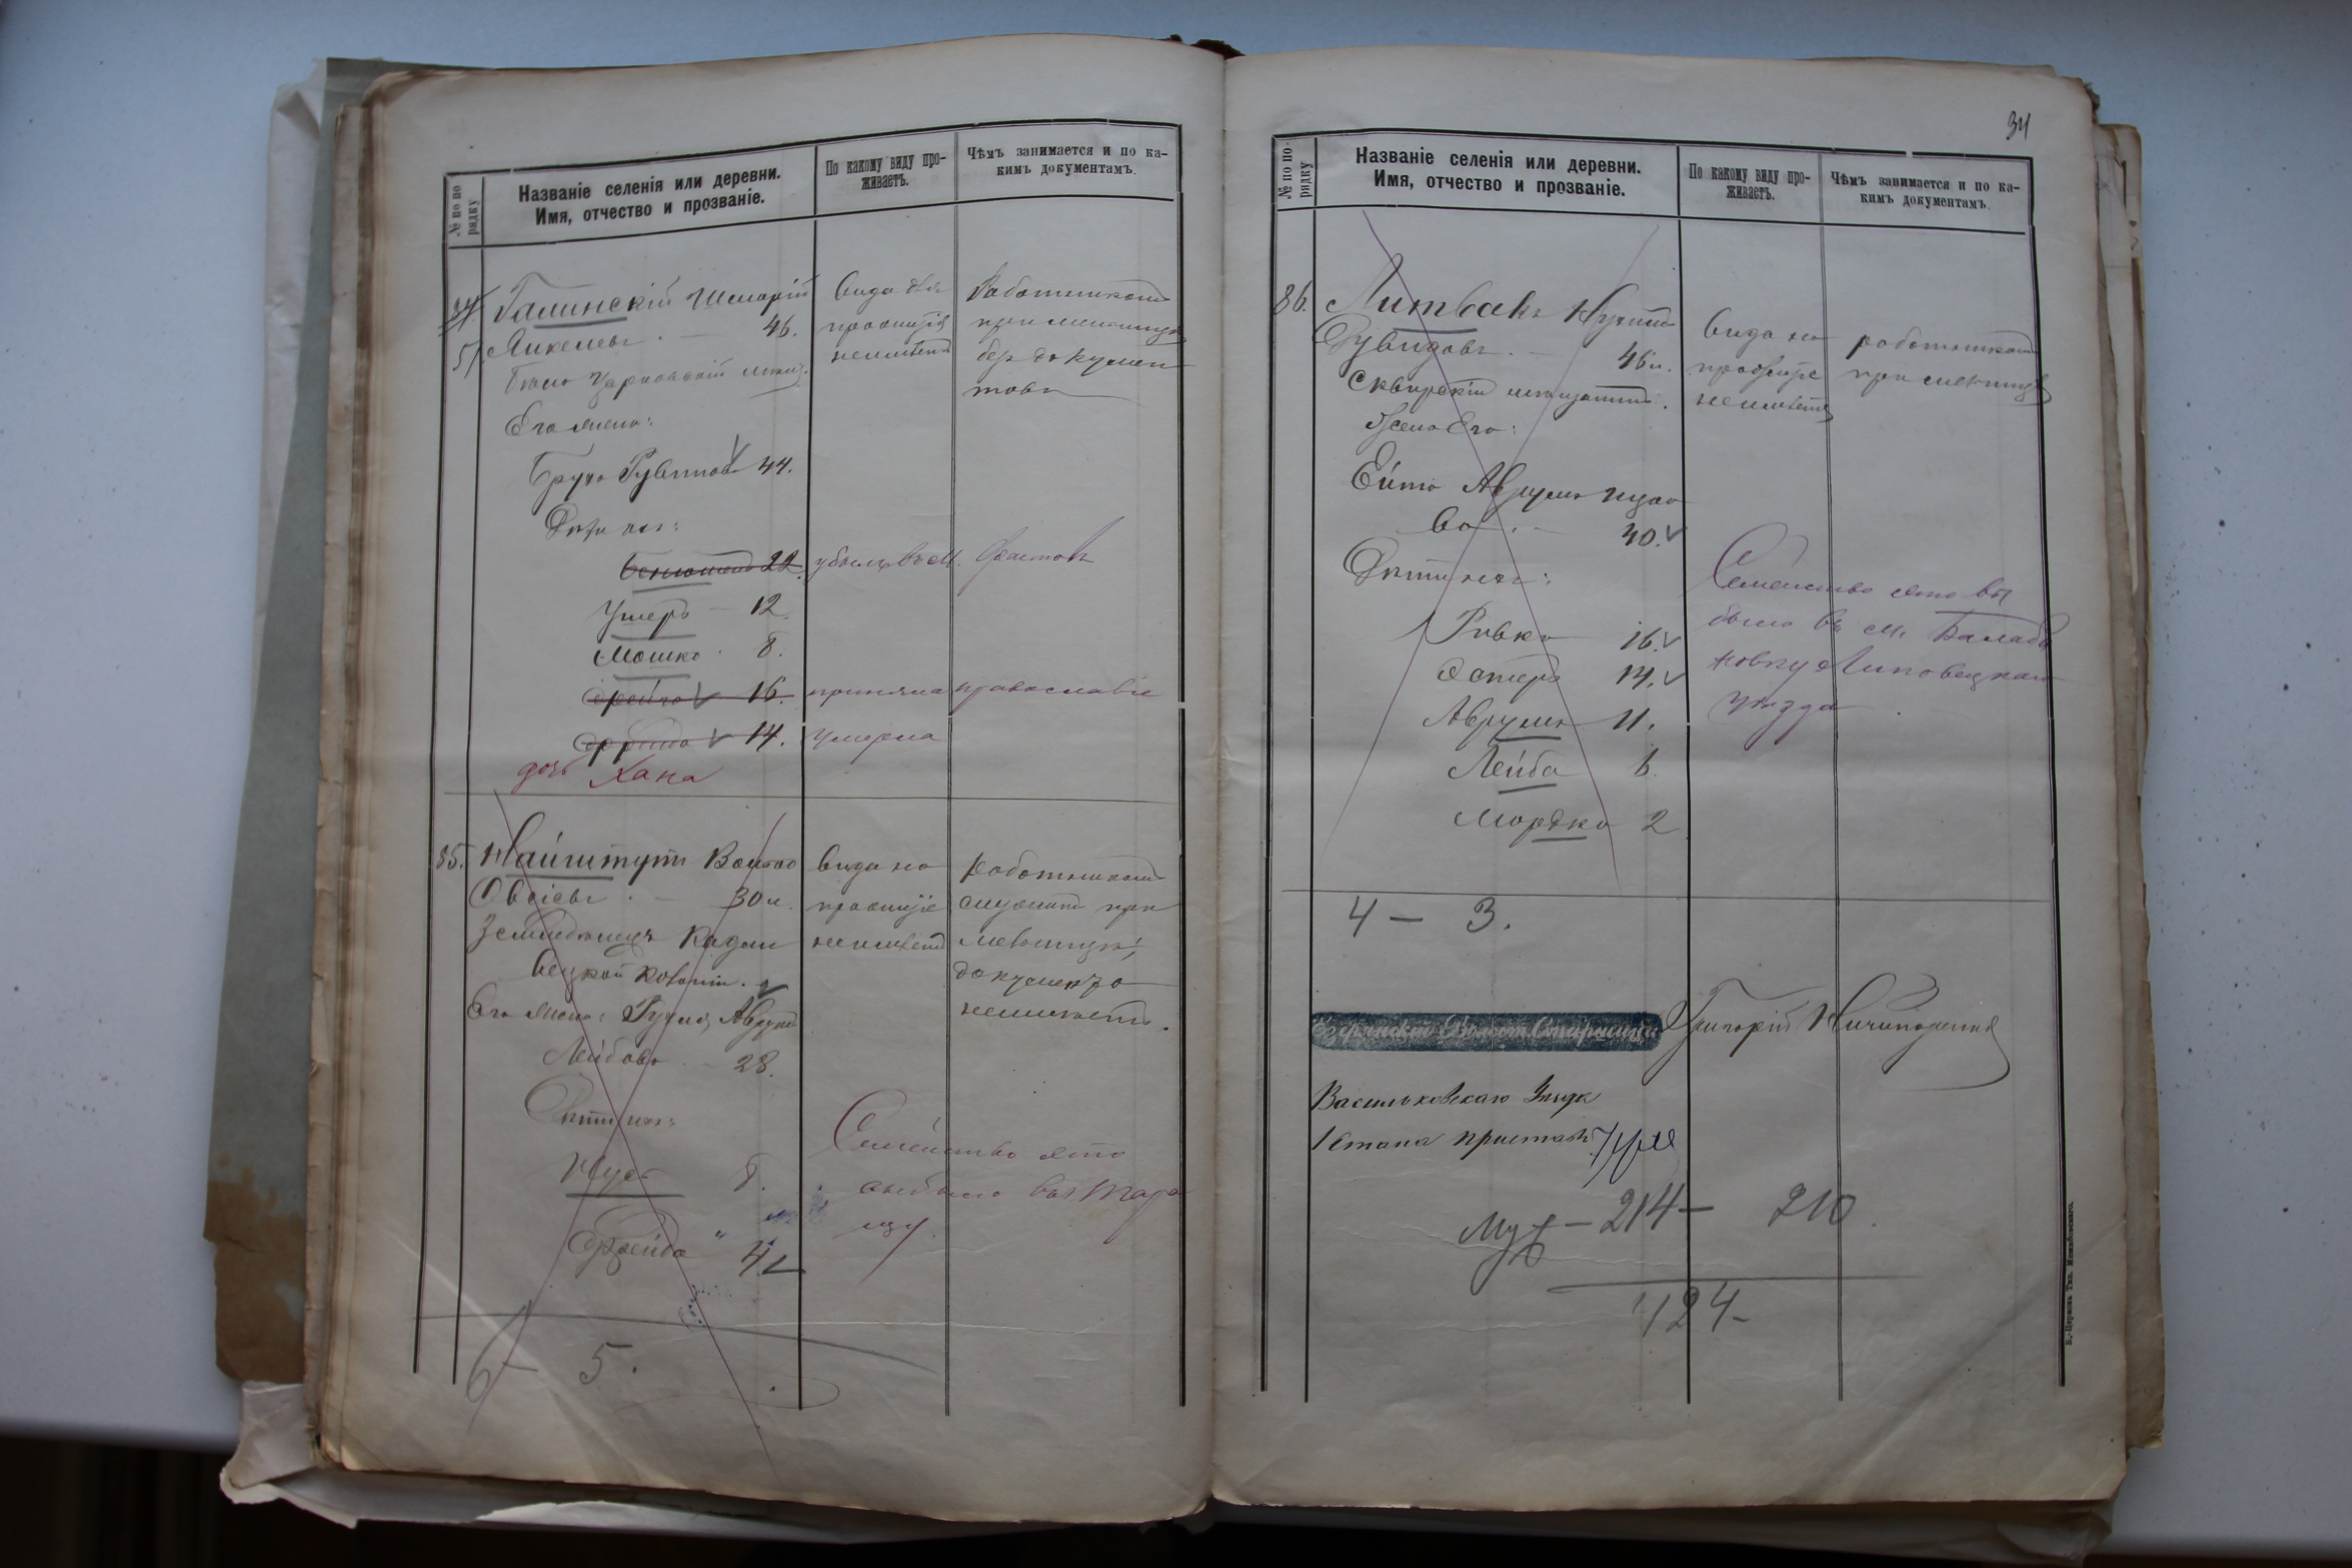 № по по
рядку
Названіе селенія или деревни.
Имя, отчество и прозваніе.
По какому виду про-
живаетъ.
Чѣмъ занимается и по ка-
кимъ документамъ.
84.
57
Галинскій Шмарій
Янкелевъ. — 46.
Бѣло Церковскій мѣщ.
Его жена:
Бруха Рувинова 44.
Дѣти ихъ:
22.
Умеръ — 12.
Мошко 8.
Фрейга 16.
14.
дочь Хана
Вида для
проживія
неимѣетъ
Работникомъ
при мельницѣ
без докумен
товъ
убылъ въ м. Фастовъ
приняла православіе
Умерла
85.
Найштутъ Волько
Овсіевъ. — 30 л.
Земледѣлецъ Кадли
вецкой Колоніи.
Его жена: Рухля Аврумъ
Лейбова — 28.
Дѣти ихъ:
Нусъ 8.
Фрейда 4
вида на
прожитіе
неимѣетъ
работникомъ
служитъ при
мельницѣ;
документа
неимѣетъ.
Семейство это
выбыло въ г. Тара
щу.
6 — 5.
34
№ по по-
рядку
Названіе селенія или деревни.
Имя, отчество и прозваніе.
По какому виду про-
живаетъ.
Чѣмъ занимается и по ка-
кимъ документамъ.
86.
Литвакъ Нухимъ
Рувиновъ. — 46 л.
Сквирскій мѣщанинъ.
Жена Его:
Ейта Аврумъ Ицко
ва. — 40.
Дѣти ихъ:
Ривка 16.
Эстеръ 14.
Аврумъ 11.
Лейба 6.
Мордко 2
вида на
прожитіе
неимѣетъ
работникомъ
при мельницѣ
Семейство это вы
было въ м. Балаба
новку Липовецкаго
уѣзда
4 — 3.
Волост. Старшина
Григорій Ничипоренко
Васильковскаго Уѣзда
1 Стана приставъ
Муж — 214 — 210.
424 -
Б.-Церковь Тип.